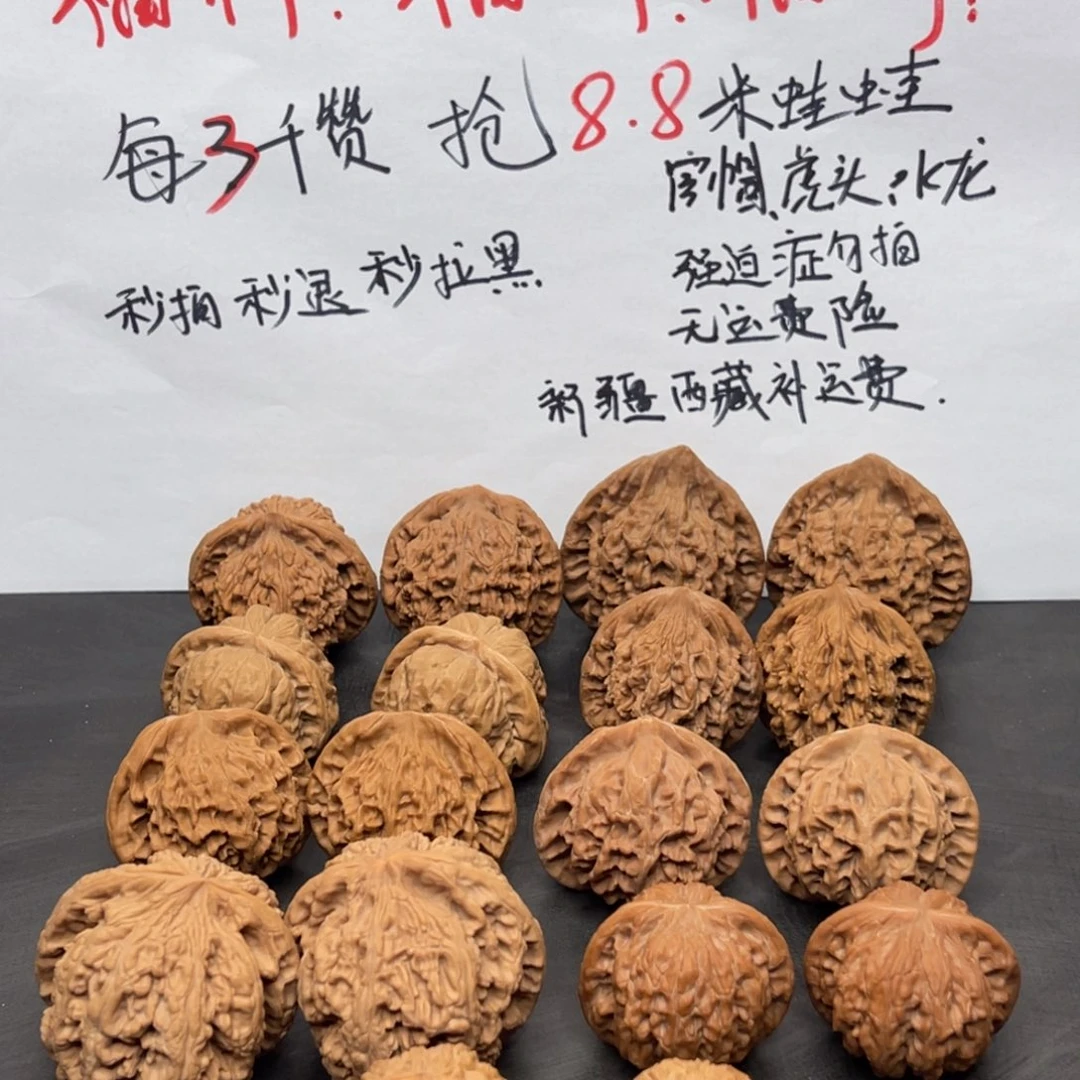 每3千赞 抢8.8米蛙蛙
官帽、虎头、水龙
秒拍 秒退 秒拉黑
强迫症勿拍
无运费险
新疆西藏补运费.